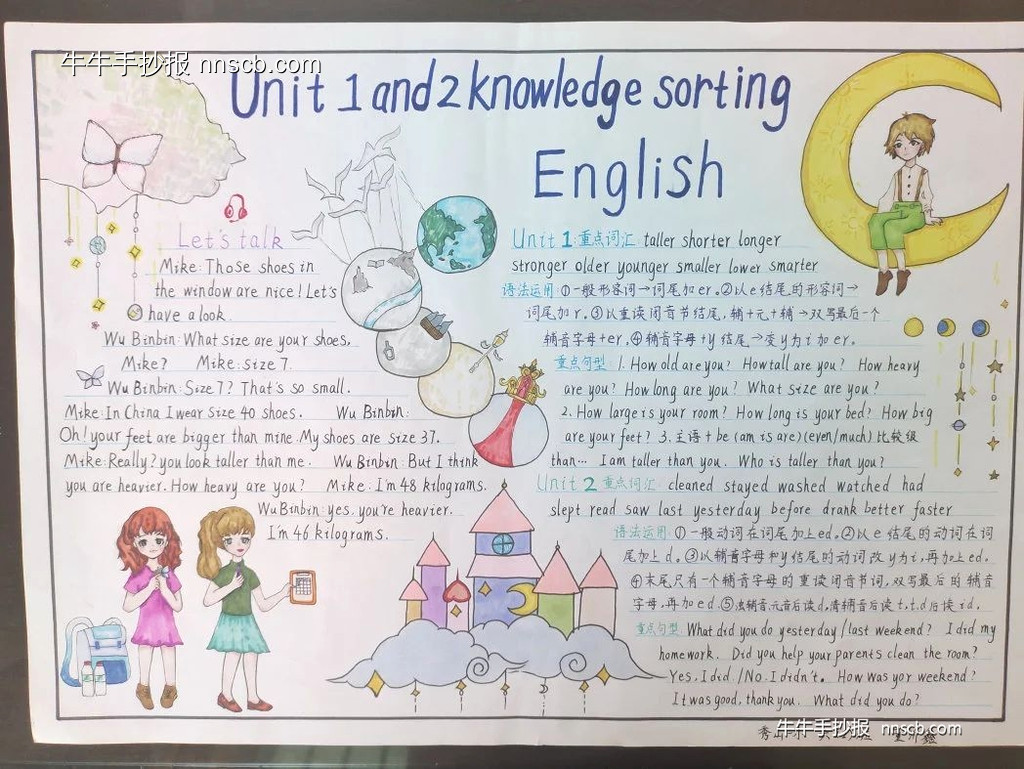 牛牛手抄报 nnscb.com
Unit 1 and 2 knowledge sorting
English
Let's talk
Mike: Those shoes in
the window are nice! Let's
have a look.
Wu Binbin: What size are your shoes,
Mike? Mike: size 7.
Wu Binbin: Size 7? That's so small.
Mike: In China I wear size 40 shoes. Wu Binbin:
Oh! your feet are bigger than mine. My shoes are size 37.
Mike: Really? you look taller than me. Wu Binbin: But I think
you are heavier. How heavy are you? Mike: I'm 48 kilograms.
Wu Binbin: yes, you're heavier.
I'm 46 kilograms.
Unit 1: 重点词汇: taller shorter longer
stronger older younger smaller lower smarter
语法运用: ①一般形容词→词尾加er. ②以e结尾的形容词→
词尾加r. ③以重读闭音节结尾, 辅+元+辅→双写最后一个
辅音字母+er. ④辅音字母+y 结尾→变y为i加er.
重点句型: 1. How old are you? How tall are you? How heavy
are you? How long are you? What size are you?
2. How large is your room? How long is your bed? How big
are your feet? 3. 主语+be (am is are) (even/much) 比较级
than… I am taller than you. Who is taller than you?
Unit 2 重点词汇: cleaned stayed washed watched had
slept read saw last yesterday before drank better faster
语法运用: ①一般动词在词尾加上ed. ②以e结尾的动词在词
尾加上d. ③以辅音字母和y结尾的动词改y为i, 再加上ed.
④末尾只有一个辅音字母的重读闭音节词, 双写最后的辅音
字母, 再加ed ⑤浊辅音、元音后读d, 清辅音后读t, t、d后读id.
重点句型: What did you do yesterday/last weekend? I did my
homework. Did you help your parents clean the room?
Yes, I did. /No. I didn't. How was yor weekend?
It was good, thank you. What did you do?
牛牛手抄报 nnscb.com